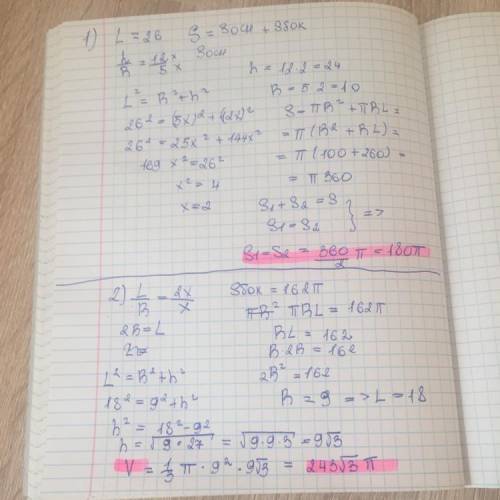 1) L = 26 S = Sосн + Sбок
h/R = 12/5 x/x Sосн
h = 12·2 = 24
L² = R² + h² R = 5·2 = 10
26² = (5x)² + (12x)² S = πR² + πRL =
26² = 25x² + 144x² = π(R² + RL) =
169x² = 26² = π(100 + 260) =
x² = 4 = π360
x = 2 S1 + S2 = S
S1 = S2 } =>
S1 = S2 = 360/2 π = 180π
2) L/R = 2x/x Sбок = 162π
2R = L πRL = 162π
RL = 162
R·2R = 162
L² = R² + h² 2R² = 162
18² = 9² + h² R = 9 => L = 18
h² = 18² - 9²
h = √9·27 = √9·9·3 = 9√3
V = 1/3 π · 9² · 9√3 = 243√3 π